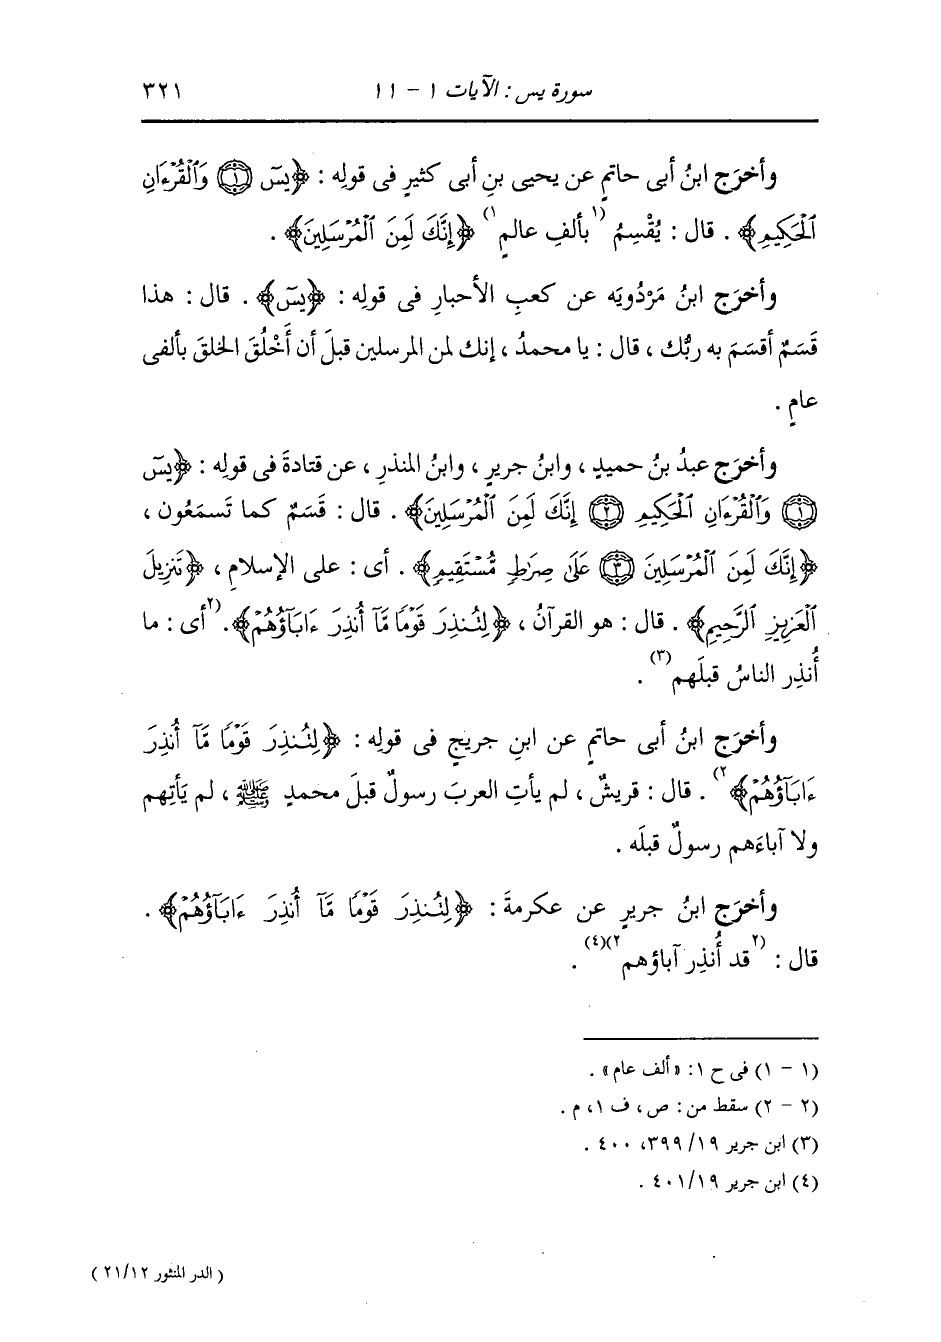 سورة يس : الآيات ١ - ١١ ٣٢١
وأخرَج ابنُ أبى حاتمٍ عن يحيى بنِ أبى كثيرٍ فى قولِه : ﴿يسٓ ۝١ وَٱلْقُرْءَانِ
ٱلْحَكِيمِ﴾ . قال : يُقْسِمُ (١بألفِ عالمٍ١) ﴿إِنَّكَ لَمِنَ ٱلْمُرْسَلِينَ﴾ .
وأخرَج ابنُ مَرْدُويَه عن كعبِ الأحبارِ فى قولِه : ﴿يسٓ﴾ . قال : هذا
قَسَمٌ أقسَمَ به ربُّك ، قال : يا محمدُ ، إنك لمن المرسلين قبلَ أن أَخْلُقَ الخلقَ بألفى
عامٍ .
وأخرَج عبدُ بنُ حميدٍ ، وابنُ جريرٍ ، وابنُ المنذرِ ، عن قتادةَ فى قولِه : ﴿يسٓ
۝١ وَٱلْقُرْءَانِ ٱلْحَكِيمِ ۝٢ إِنَّكَ لَمِنَ ٱلْمُرْسَلِينَ﴾ . قال : قَسَمٌ كما تَسمَعُون ،
﴿إِنَّكَ لَمِنَ ٱلْمُرْسَلِينَ ۝٣ عَلَىٰ صِرَٰطٍ مُّسْتَقِيمٍ﴾ . أى : على الإسلامِ ، ﴿تَنزِيلَ
ٱلْعَزِيزِ ٱلرَّحِيمِ﴾ . قال : هو القرآنُ ، ﴿لِتُنذِرَ قَوْمًا مَّآ أُنذِرَ ءَابَآؤُهُمْ﴾. (٢أى : ما
أُنذِر الناسُ قبلَهم(٣) .
وأخرَج ابنُ أبى حاتمٍ عن ابنِ جريجٍ فى قولِه : ﴿لِتُنذِرَ قَوْمًا مَّآ أُنذِرَ
ءَابَآؤُهُمْ﴾٢) . قال : قريشٌ ، لم يأتِ العربَ رسولٌ قبلَ محمدٍ ﷺ ، لم يَأتِهم
ولا آباءَهم رسولٌ قبلَه .
وأخرَج ابنُ جريرٍ عن عكرمةَ : ﴿لِتُنذِرَ قَوْمًا مَّآ أُنذِرَ ءَابَآؤُهُمْ﴾ .
قال : (٢قد أُنذِر آباؤهم٢)(٤) .
(١ - ١) فى ح ١: «ألف عام» .
(٢ - ٢) سقط من : ص ، ف ١، م .
(٣) ابن جرير ١٩/ ٣٩٩، ٤٠٠ .
(٤) ابن جرير ٤٠١/١٩ .
( الدر المنثور ٢١/١٢ )